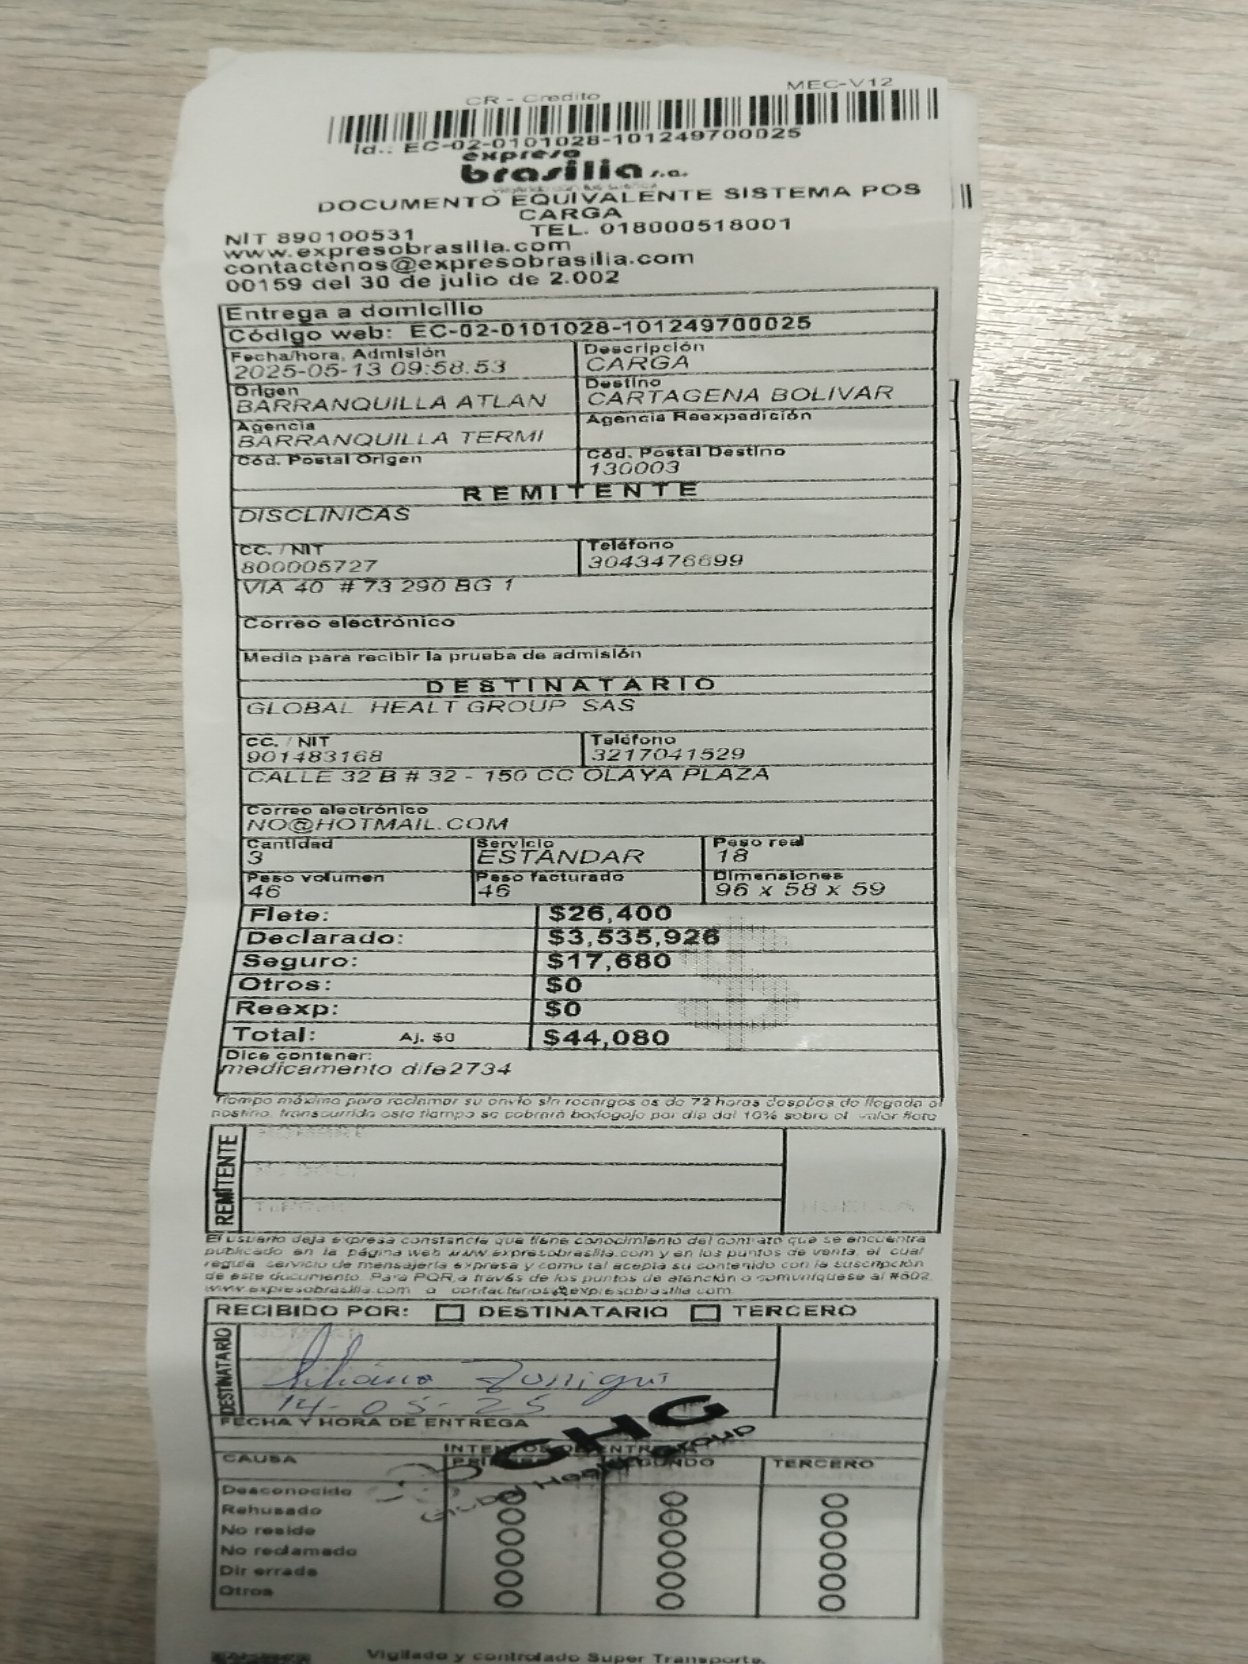 CR - Credito MEC-V12
Id.: EC-02-0101028-101249700025
expreso
brasilia s.a.
DOCUMENTO EQUIVALENTE SISTEMA POS
CARGA
NIT 890100531 TEL. 018000518001
www.expresobrasilia.com
contactenos@expresobrasilia.com
00159 del 30 de julio de 2.002
Entrega a domicilio
Código web: EC-02-0101028-101249700025
Fecha/hora, Admisión Descripción
2025-05-13 09:58.53 CARGA
Origen Destino
BARRANQUILLA ATLAN CARTAGENA BOLIVAR
Agencia Agencia Reexpedición
BARRANQUILLA TERMI
Cód. Postal Origen Cód. Postal Destino
130003
REMITENTE
DISCLINICAS
CC. / NIT Teléfono
800005727 3043476699
VIA 40 # 73 290 BG 1
Correo electrónico
Medio para recibir la prueba de admisión
DESTINATARIO
GLOBAL HEALT GROUP SAS
CC. / NIT Teléfono
901483168 3217041529
CALLE 32 B # 32 - 150 CC OLAYA PLAZA
Correo electrónico
NO@HOTMAIL.COM
Cantidad Servicio Peso real
3 ESTANDAR 18
Peso volumen Peso facturado Dimensiones
46 46 96 x 58 x 59
Flete: $26,400
Declarado: $3,535,926
Seguro: $17,680
Otros: $0
Reexp: $0
Total: Aj. $0 $44,080
Dice contener:
medicamento dife2734
Tiempo máximo para reclamar su envío sin recargos es de 72 horas después de llegada al
destino, transcurrido este tiempo se cobrará bodegaje por día del 10% sobre el valor flete
REMITENTE
El usuario deja expresa constancia que tiene conocimiento del contrato que se encuentra
publicado en la página web www.expresobrasilia.com y en los puntos de venta, el cual
regula servicio de mensajería expresa y como tal acepta su contenido con la suscripción
de este documento. Para PQR a través de los puntos de atención o comuníquese al #502
www.expresobrasilia.com o contactenos@expresobrasilia.com
RECIBIDO POR: DESTINATARIO TERCERO
DESTINATARIO
14-05-25
FECHA Y HORA DE ENTREGA
GHG
Global Health Group
INTENTOS DE ENTREGA
CAUSA PRIMERO SEGUNDO TERCERO
Desconocido
Rehusado
No reside
No reclamado
Dir errada
Otros
Vigilado y controlado Super Transporte.